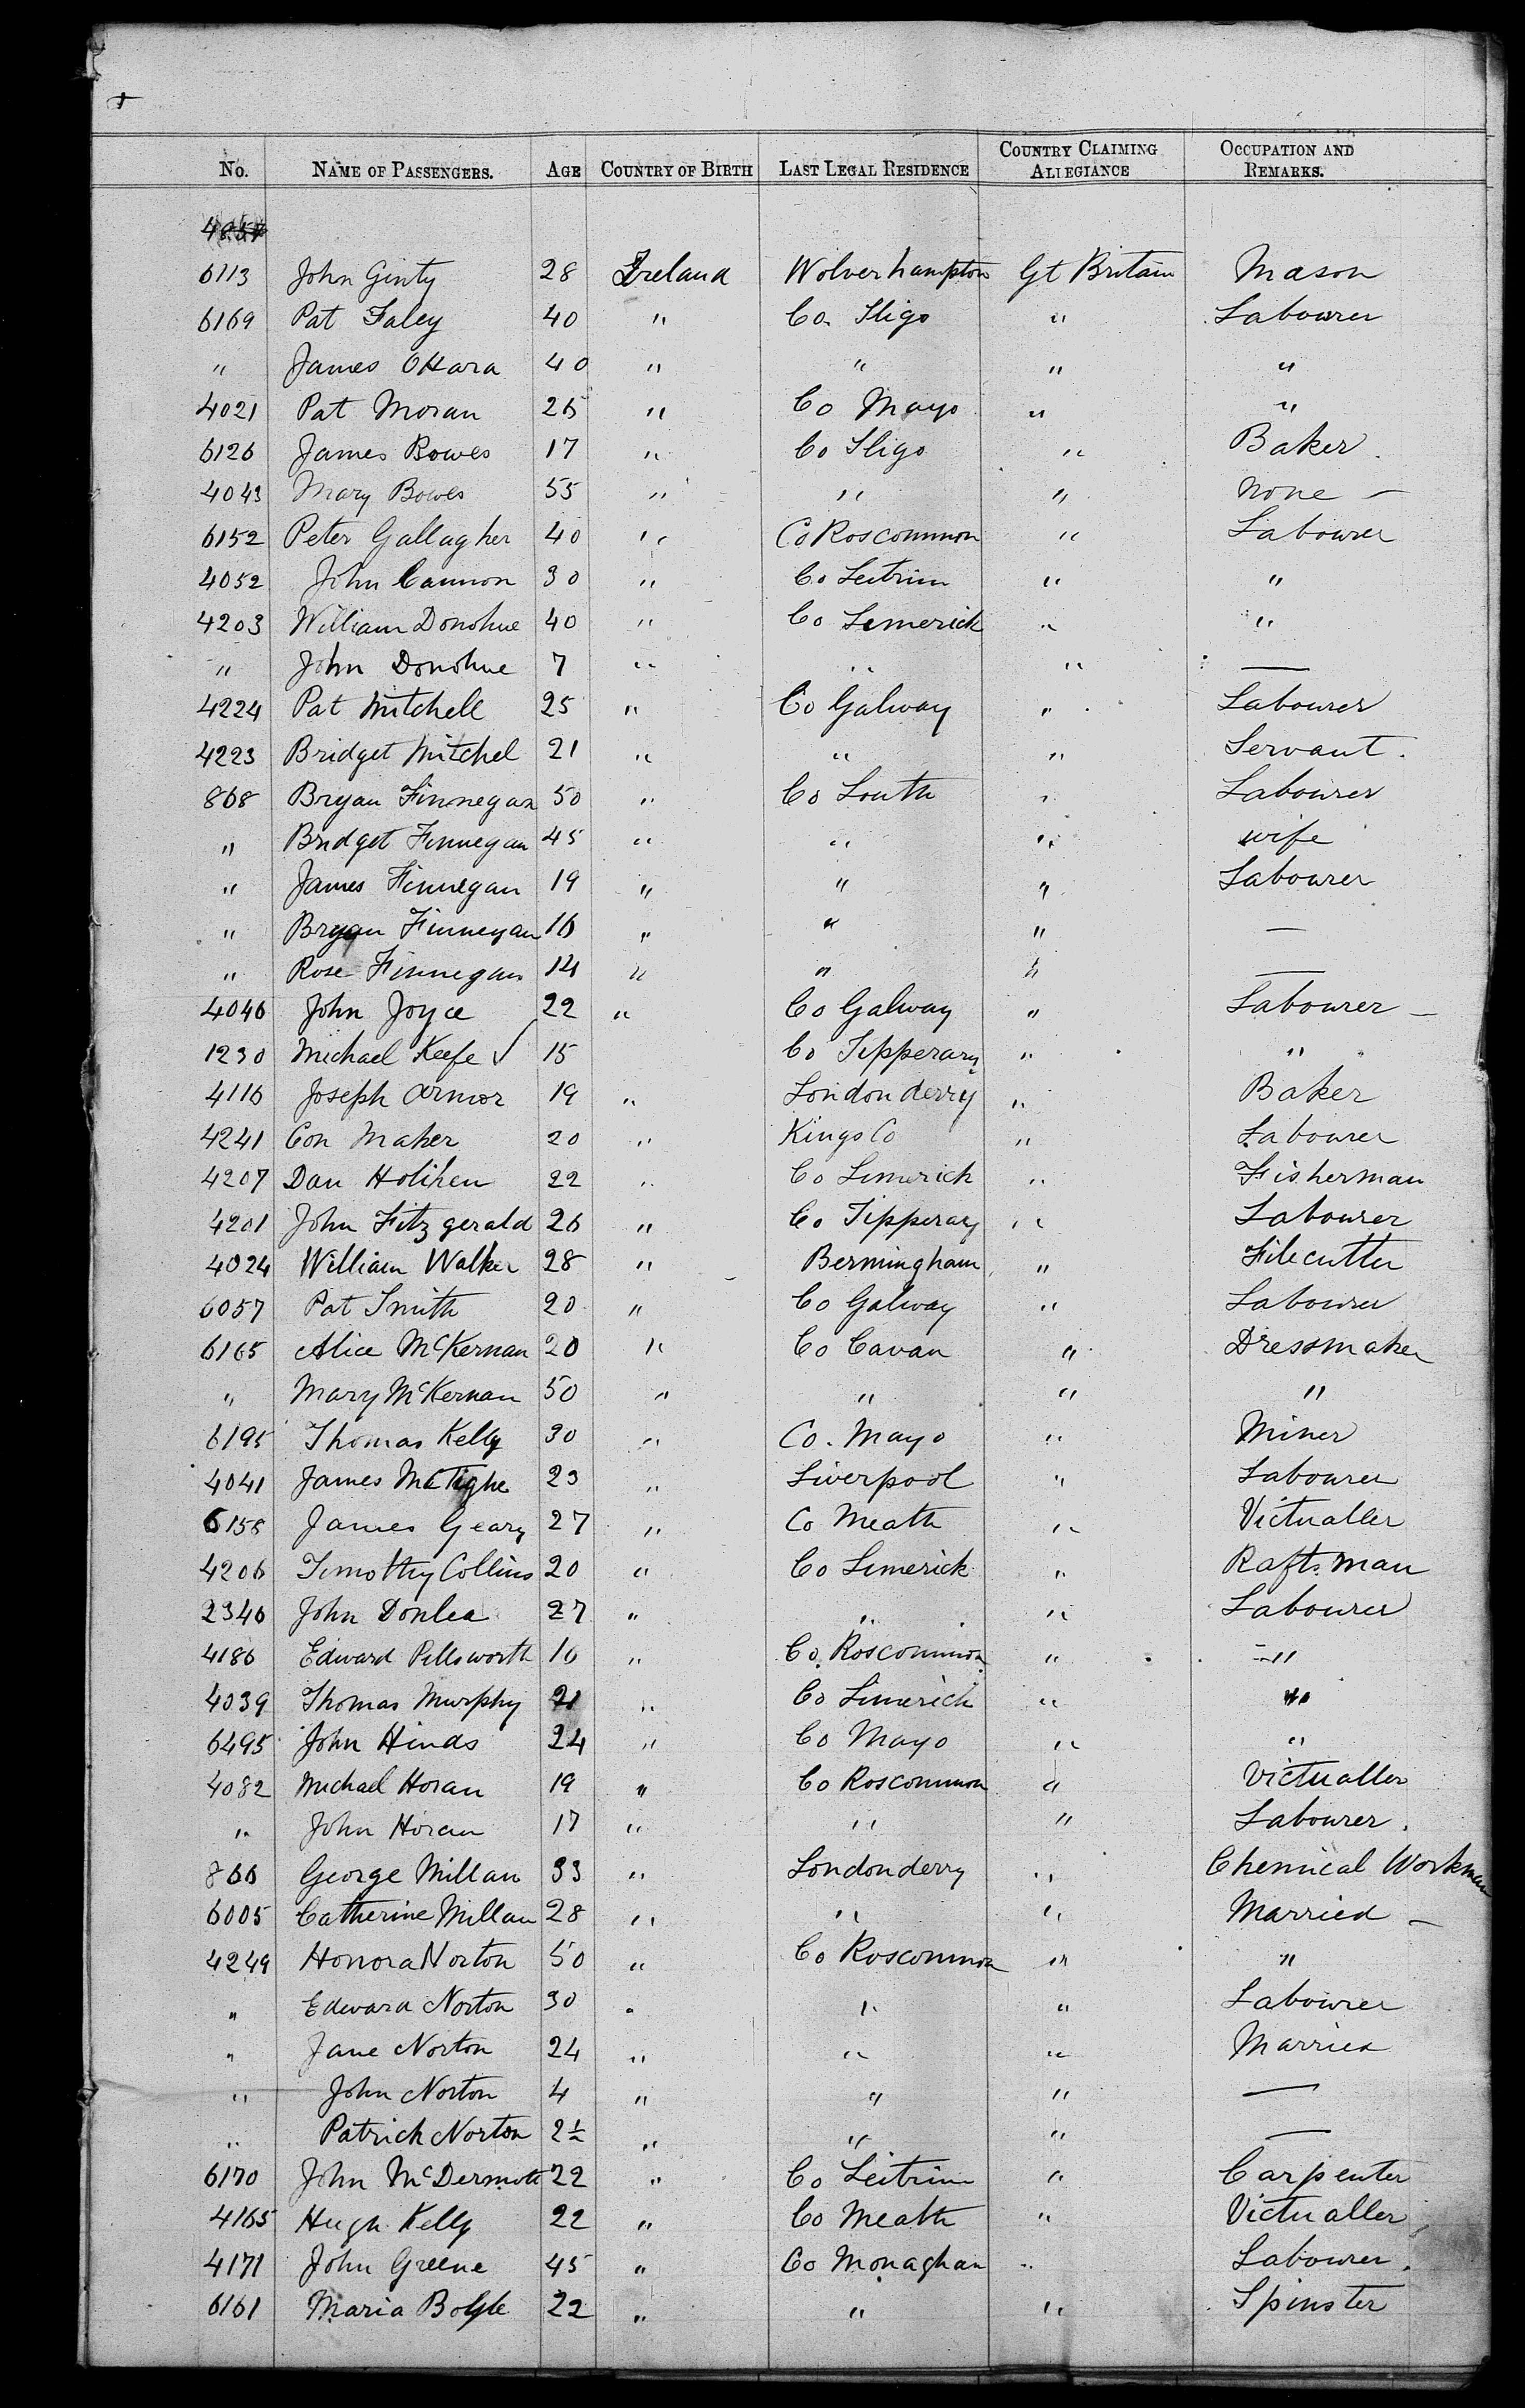 No. NAME OF PASSENGERS. AGE COUNTRY OF BIRTH LAST LEGAL RESIDENCE COUNTRY CLAIMING ALLEGIANCE OCCUPATION AND REMARKS.
6113 John Ginty 28 Ireland Wolverhampton Gt Britain Mason
6169 Pat Faley 40 " Co. Sligo " Labourer
" James OHara 40 " " " "
4021 Pat Moran 25 " Co Mayo " "
6126 James Bowes 17 " Co Sligo " Baker
4043 Mary Bowes 55 " " " none —
6152 Peter Gallagher 40 " Co Roscommon " Labourer
4052 John Cannon 30 " Co Leitrim " "
4203 William Donohue 40 " Co Limerick " "
" John Donohue 7 " " " —
4224 Pat Mitchell 25 " Co Galway " Labourer
4223 Bridget Mitchel 21 " " " Servant.
868 Bryan Finnegan 50 " Co Louth " Labourer
" Bridget Finnegan 45 " " " wife
" James Finnegan 19 " " " Labourer
" Bryan Finnegan 16 " " " —
" Rose Finnegan 14 " " " —
4046 John Joyce 22 " Co Galway " Labourer —
1230 Michael Keefe ✓ 15 Co Tipperary " "
4116 Joseph Armor 19 " Londonderry " Baker
4241 Con Maher 20 " Kings Co " Labourer
4207 Dan Holihen 22 " Co Limerick " Fisherman
4201 John Fitzgerald 26 " Co Tipperay " Labourer
4024 William Walker 28 " Bermingham " Filecutter
6057 Pat Smith 20 " Co Galway " Labourer
6165 Alice McKernan 20 " Co Cavan " Dressmaker
" Mary McKernan 50 " " " "
6195 Thomas Kelly 30 " Co. Mayo " Miner
4041 James McTighe 23 " Liverpool " Labourer
6158 James Geary 27 " Co Meath " Victualler
4206 Timothy Collins 20 " Co Limerick " Raftsman
2346 John Donlea 27 " " " Labourer
4186 Edward Pillsworth 16 " Co. Roscommon " "
4039 Thomas Murphy 21 " Co Limerick " "
6495 John Hinds 24 " Co Mayo " "
4082 Michael Horan 19 " Co Roscommon " Victualler
" John Horan 17 " " " Labourer.
866 George Millan 33 " Londonderry " Chemical Workman
6005 Catherine Millan 28 " " " Married —
4249 Honora Norton 50 " Co Roscommon " "
" Edward Norton 30 " " " Labourer
" Jane Norton 24 " " " Married
" John Norton 4 " " " —
" Patrick Norton 2½ " " " —
6170 John McDermott 22 " Co Leitrim " Carpenter
4165 Hugh Kelly 22 " Co Meath " Victualler
4171 John Greene 45 " Co Monaghan " Labourer.
6161 Maria Boyle 22 " " " Spinster